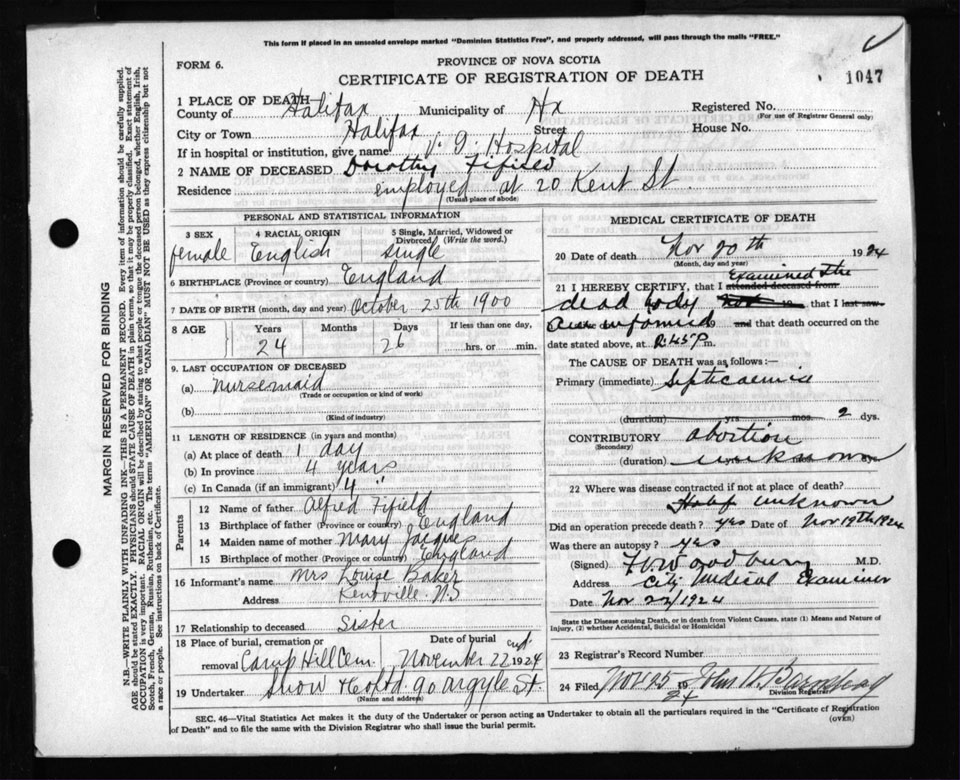 This form if placed in an unsealed envelope marked "Dominion Statistics Free", and properly addressed, will pass through the mails "FREE."
FORM 6.
PROVINCE OF NOVA SCOTIA
CERTIFICATE OF REGISTRATION OF DEATH
1047
1 PLACE OF DEATH—
County of Halifax Municipality of Hx Registered No.
(For use of Registrar General only)
City or Town Halifax Street House No.
If in hospital or institution, give name V. G. Hospital
2 NAME OF DECEASED Dorothy Fifield
Residence employed at 20 Kent St.
(Usual place of abode)
PERSONAL AND STATISTICAL INFORMATION
3 SEX 4 RACIAL ORIGIN 5 Single, Married, Widowed or Divorced (Write the word.)
female English single
6 BIRTHPLACE (Province or country) England
7 DATE OF BIRTH (month, day and year) October 25th 1900
8 AGE Years Months Days If less than one day,
24 26 hrs. or min.
9. LAST OCCUPATION OF DECEASED
(a) nursemaid
(Trade or occupation or kind of work)
(b)
(Kind of industry)
11 LENGTH OF RESIDENCE (in years and months)
(a) At place of death 1 day
(b) In province 4 years
(c) In Canada (if an immigrant) 4 "
Parents
12 Name of father Alfred Fifield
13 Birthplace of father (Province or country) England
14 Maiden name of mother Mary Jacques
15 Birthplace of mother (Province or country) England
16 Informant's name Mrs Louise Baker
Address Kentville N.S
17 Relationship to deceased Sister
18 Place of burial, cremation or removal Camp Hill Cem. Date of burial November 22nd 1924
19 Undertaker Snow & Co Ltd. 90 Argyle St.
(Name and address)
MEDICAL CERTIFICATE OF DEATH
20 Date of death Nov 20th 1924
(Month, day and year)
Examined the
21 I HEREBY CERTIFY, that I attended deceased from
dead body 19 that I last saw
informed 19 and that death occurred on the
date stated above, at m.
The CAUSE OF DEATH was as follows:—
Primary (immediate) Septicaemia
(duration) yrs. mos. 2 dys.
CONTRIBUTORY abortion
(Secondary)
(duration) unknown
22 Where was disease contracted if not at place of death?
unknown
Did an operation precede death? yes Date of Nov 19th 1924
Was there an autopsy? yes
(Signed) Woodbury M.D.
Address City Medical Examiner
Date Nov 22/1924
State the Disease causing Death, or in death from Violent Causes, state (1) Means and Nature of Injury, (2) whether Accidental, Suicidal or Homicidal
23 Registrar's Record Number
24 Filed Nov 25 1924 John H. Barnstead
Division Registrar
SEC. 46—Vital Statistics Act makes it the duty of the Undertaker or person acting as Undertaker to obtain all the particulars required in the "Certificate of Registration of Death" and to file the same with the Division Registrar who shall issue the burial permit.
(OVER)
MARGIN RESERVED FOR BINDING
N.B.—WRITE PLAINLY WITH UNFADING INK—THIS IS A PERMANENT RECORD. Every item of information should be carefully supplied.
AGE should be stated EXACTLY. PHYSICIANS should STATE CAUSE OF DEATH in plain terms, so that it may be properly classified. Exact statement of
OCCUPATION is very important. RACIAL ORIGIN will be described by stating to what people or tongue the deceased person belonged, whether English, Irish,
Scotch, French, German, Russian, Ruthenian, etc. The terms "AMERICAN" OR "CANADIAN" MUST NOT BE USED as they express citizenship but not
a race or people. See instructions on back of Certificate.